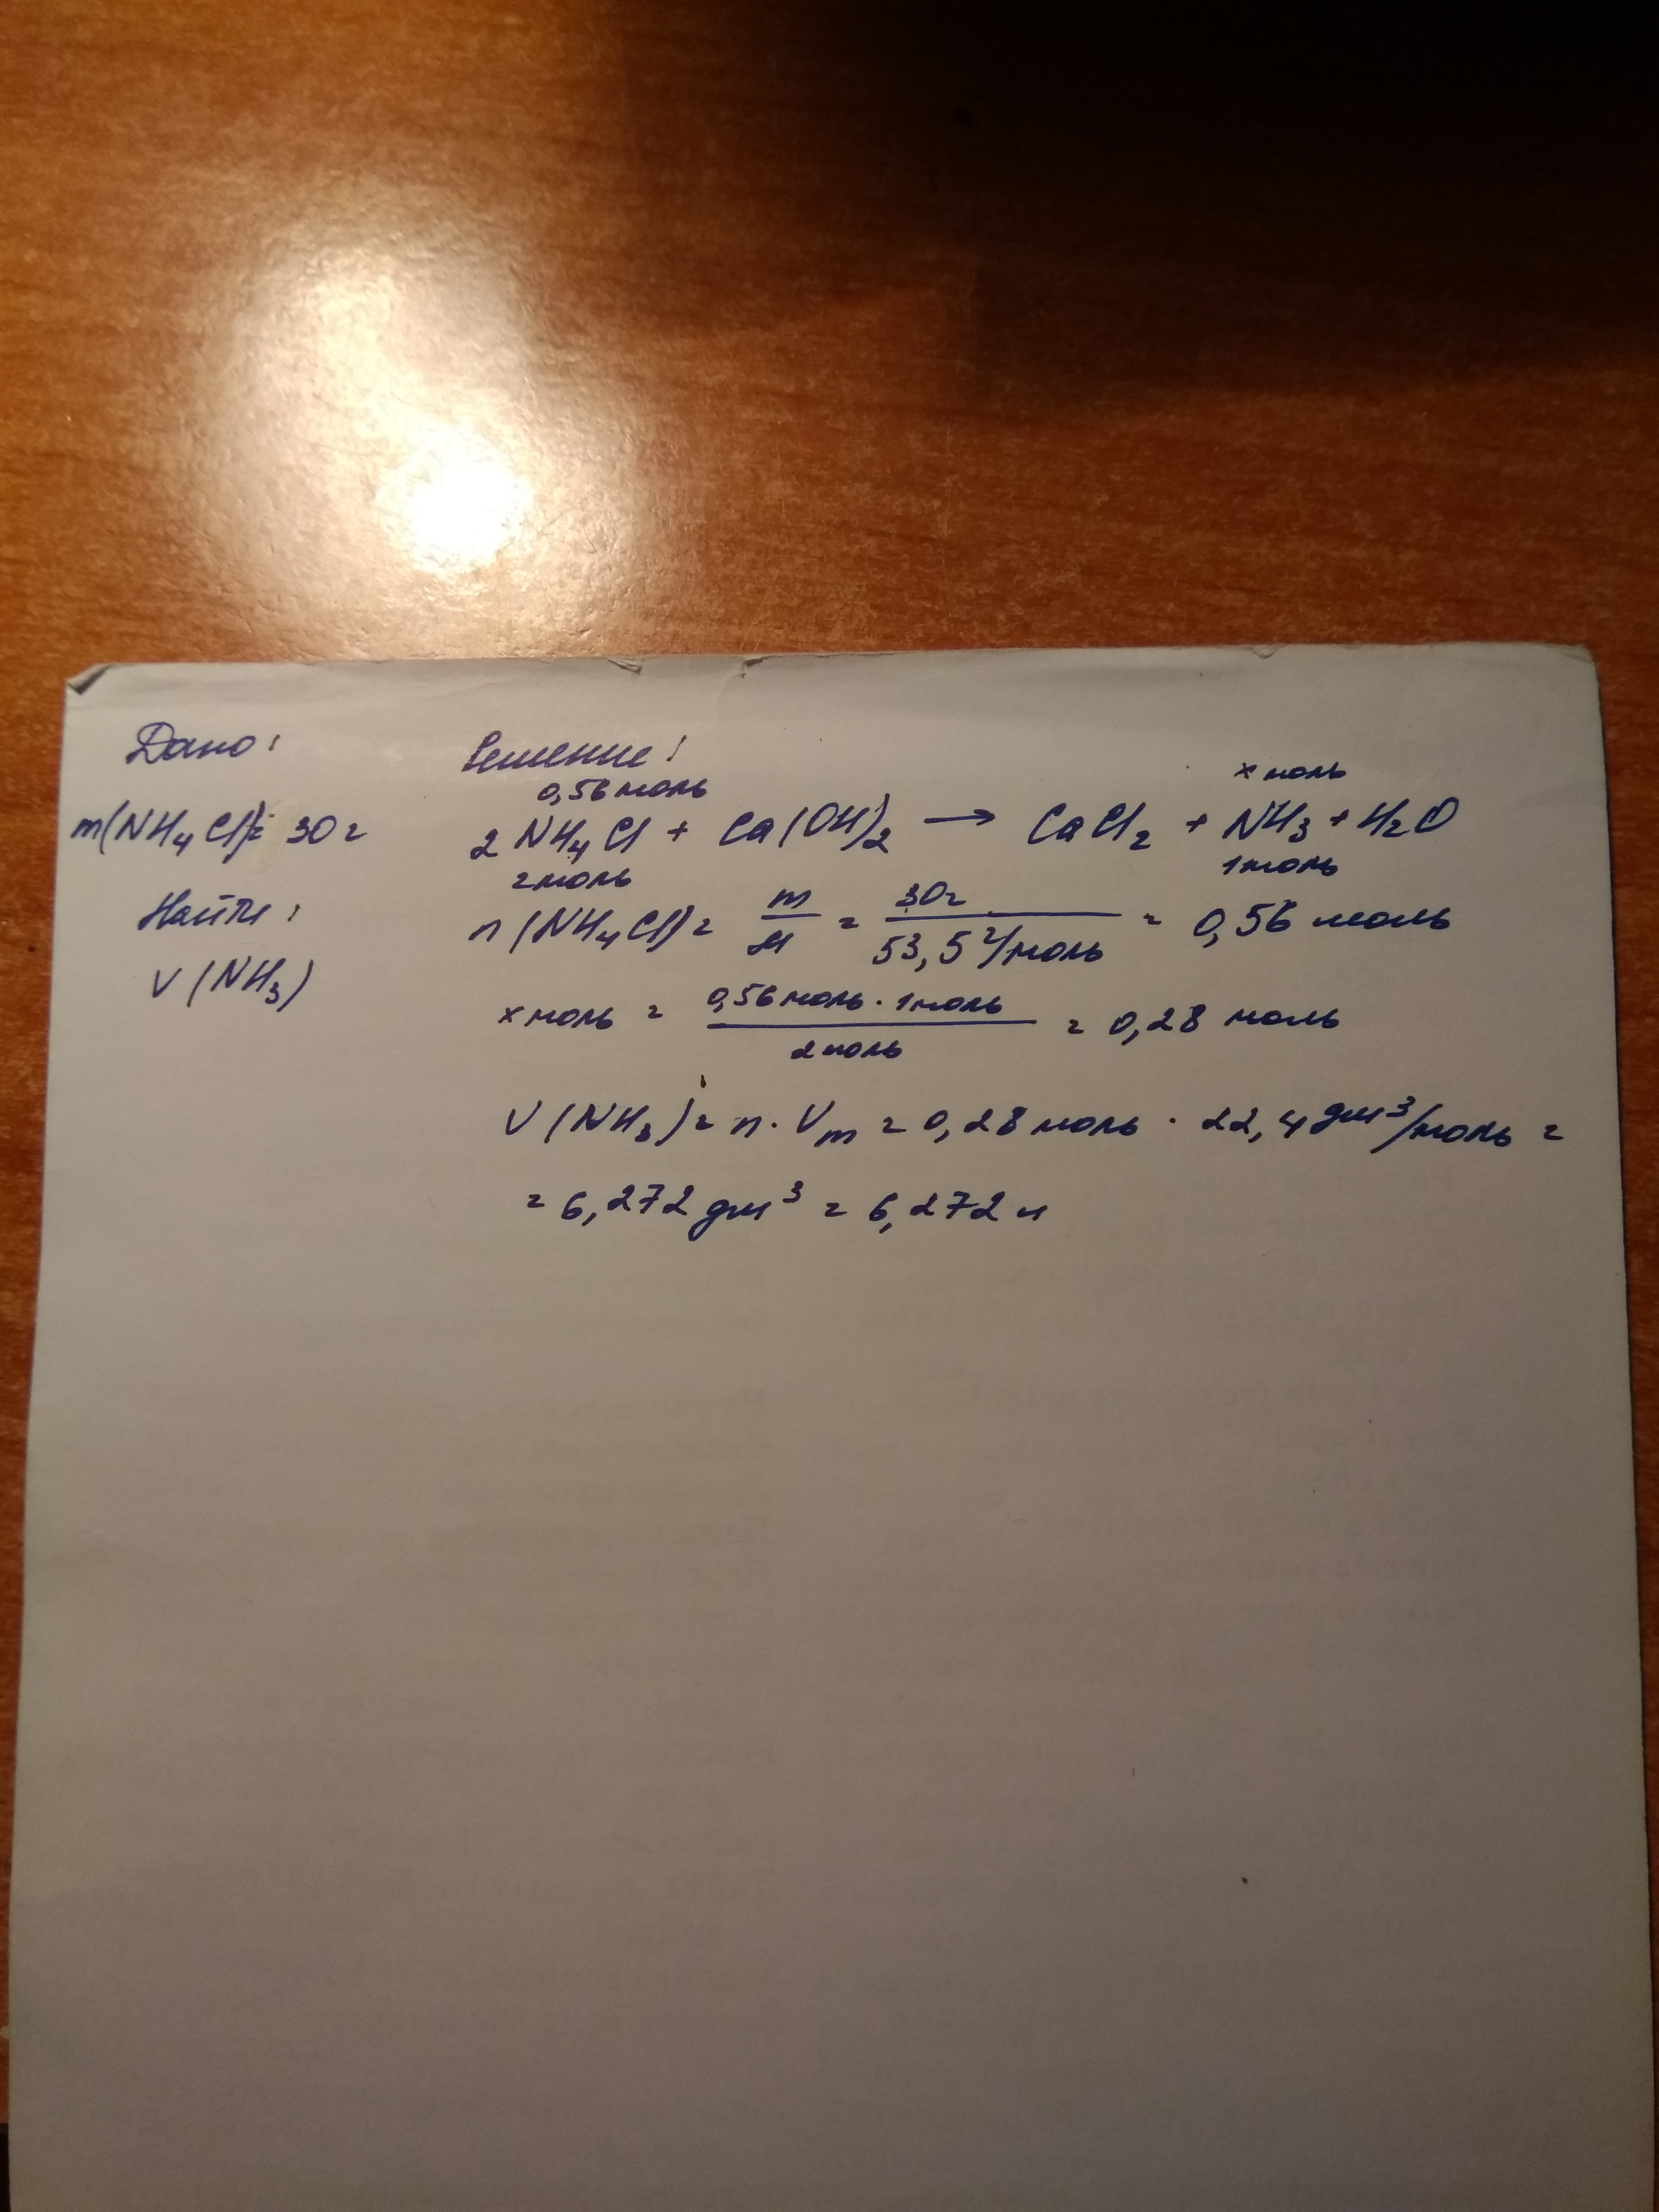 Дано:
m(NH₄Cl)= 30 г
Найти:
V (NH₃)
Решение:
0,56 моль x моль
2 NH₄Cl + Ca(OH)₂ → CaCl₂ + NH₃ + H₂O
2 моль 1 моль
n (NH₄Cl) = m/M = 30г/53,5 г/моль = 0,56 моль
x моль = 0,56 моль · 1 моль/2 моль = 0,28 моль
V (NH₃) = n · Vm = 0,28 моль · 22,4 дм³/моль =
= 6,272 дм³ = 6,272 л